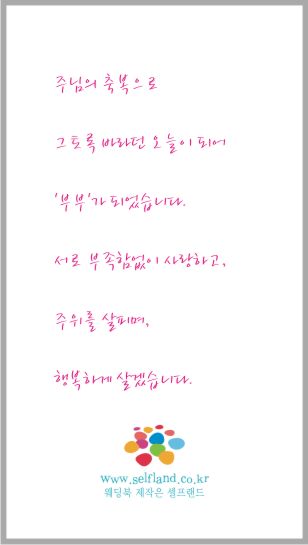 주님의 축복으로
그토록 바라던 오늘이 되어
'부부'가 되었습니다.
서로 부족함없이 사랑하고,
주위를 살피며,
행복하게 살겠습니다.
www.selfland.co.kr
웨딩북 제작은 셀프랜드